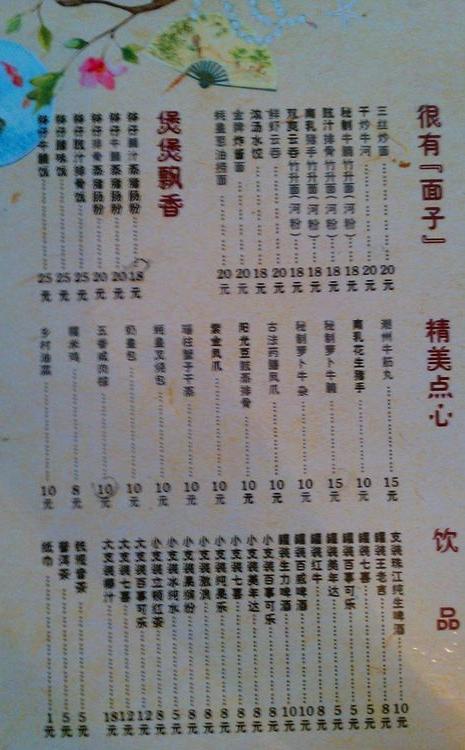 很有『面子』
三丝炒面 20元
干炒牛河 20元
秘制牛腩竹升面（河粉） 18元
豉汁排骨竹升面（河粉） 18元
南乳猪手竹升面（河粉） 18元
双夹云吞竹升面（河粉） 18元
鲜虾云吞 20元
浓汤水饺 18元
金牌炸酱面 20元
蚝皇葱油捞面 20元
煲煲飘香
钵仔酱汁蒸猪肠粉 18元
钵仔牛腩蒸猪肠粉 20元
钵仔排骨蒸猪肠粉 20元
钵仔豉汁排骨饭 25元
钵仔腊味饭 25元
钵仔牛腩饭 25元
精美点心
潮州牛筋丸 15元
南乳花生猪手 10元
秘制萝卜牛腩 15元
秘制萝卜牛杂 10元
古法药膳凤爪 10元
阳光豆豉蒸排骨 10元
紫金凤爪 10元
瑶柱蟹子干蒸 10元
蚝皇叉烧包 10元
奶皇包 10元
五香咸肉粽 10元
糯米鸡 8元
乡村油菜 10元
饮品
支装珠江纯生啤酒 10元
罐装王老吉 8元
罐装七喜 5元
罐装百事可乐 5元
罐装美年达 5元
罐装红牛 8元
罐装百威啤酒 10元
罐装生力啤酒 10元
小支装百事可乐 8元
小支装美年达 8元
小支装七喜 8元
小支装纯果乐 8元
小支装激浪 8元
小支装果缤纷 8元
小支装冰纯水 5元
小支装立顿红茶 8元
大支装百事可乐 12元
大支装七喜 12元
大支装椰汁 18元
铁观音茶 5元
普洱茶 5元
纸巾 1元